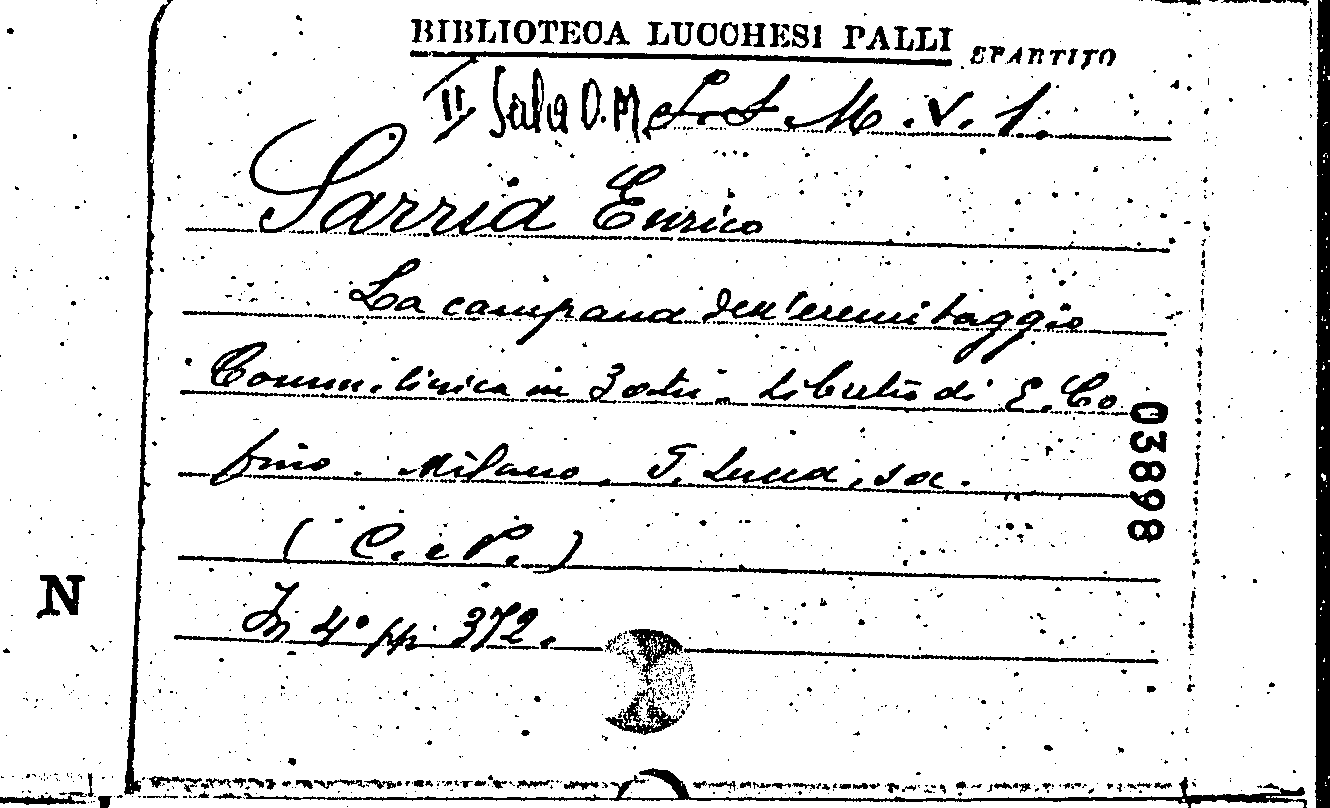 BIBLIOTECA LUCCHESI PALLI SPARTITO
II Sala O. M. M. V. 1.
Sarria Enrico
La campana dell'eremitaggio
Comm. lirica in 3 atti. Libretto di E. Co
fino. Milano, F. Lucca, sa.
(C. e P.)
In 4° pp. 372.
03898
N